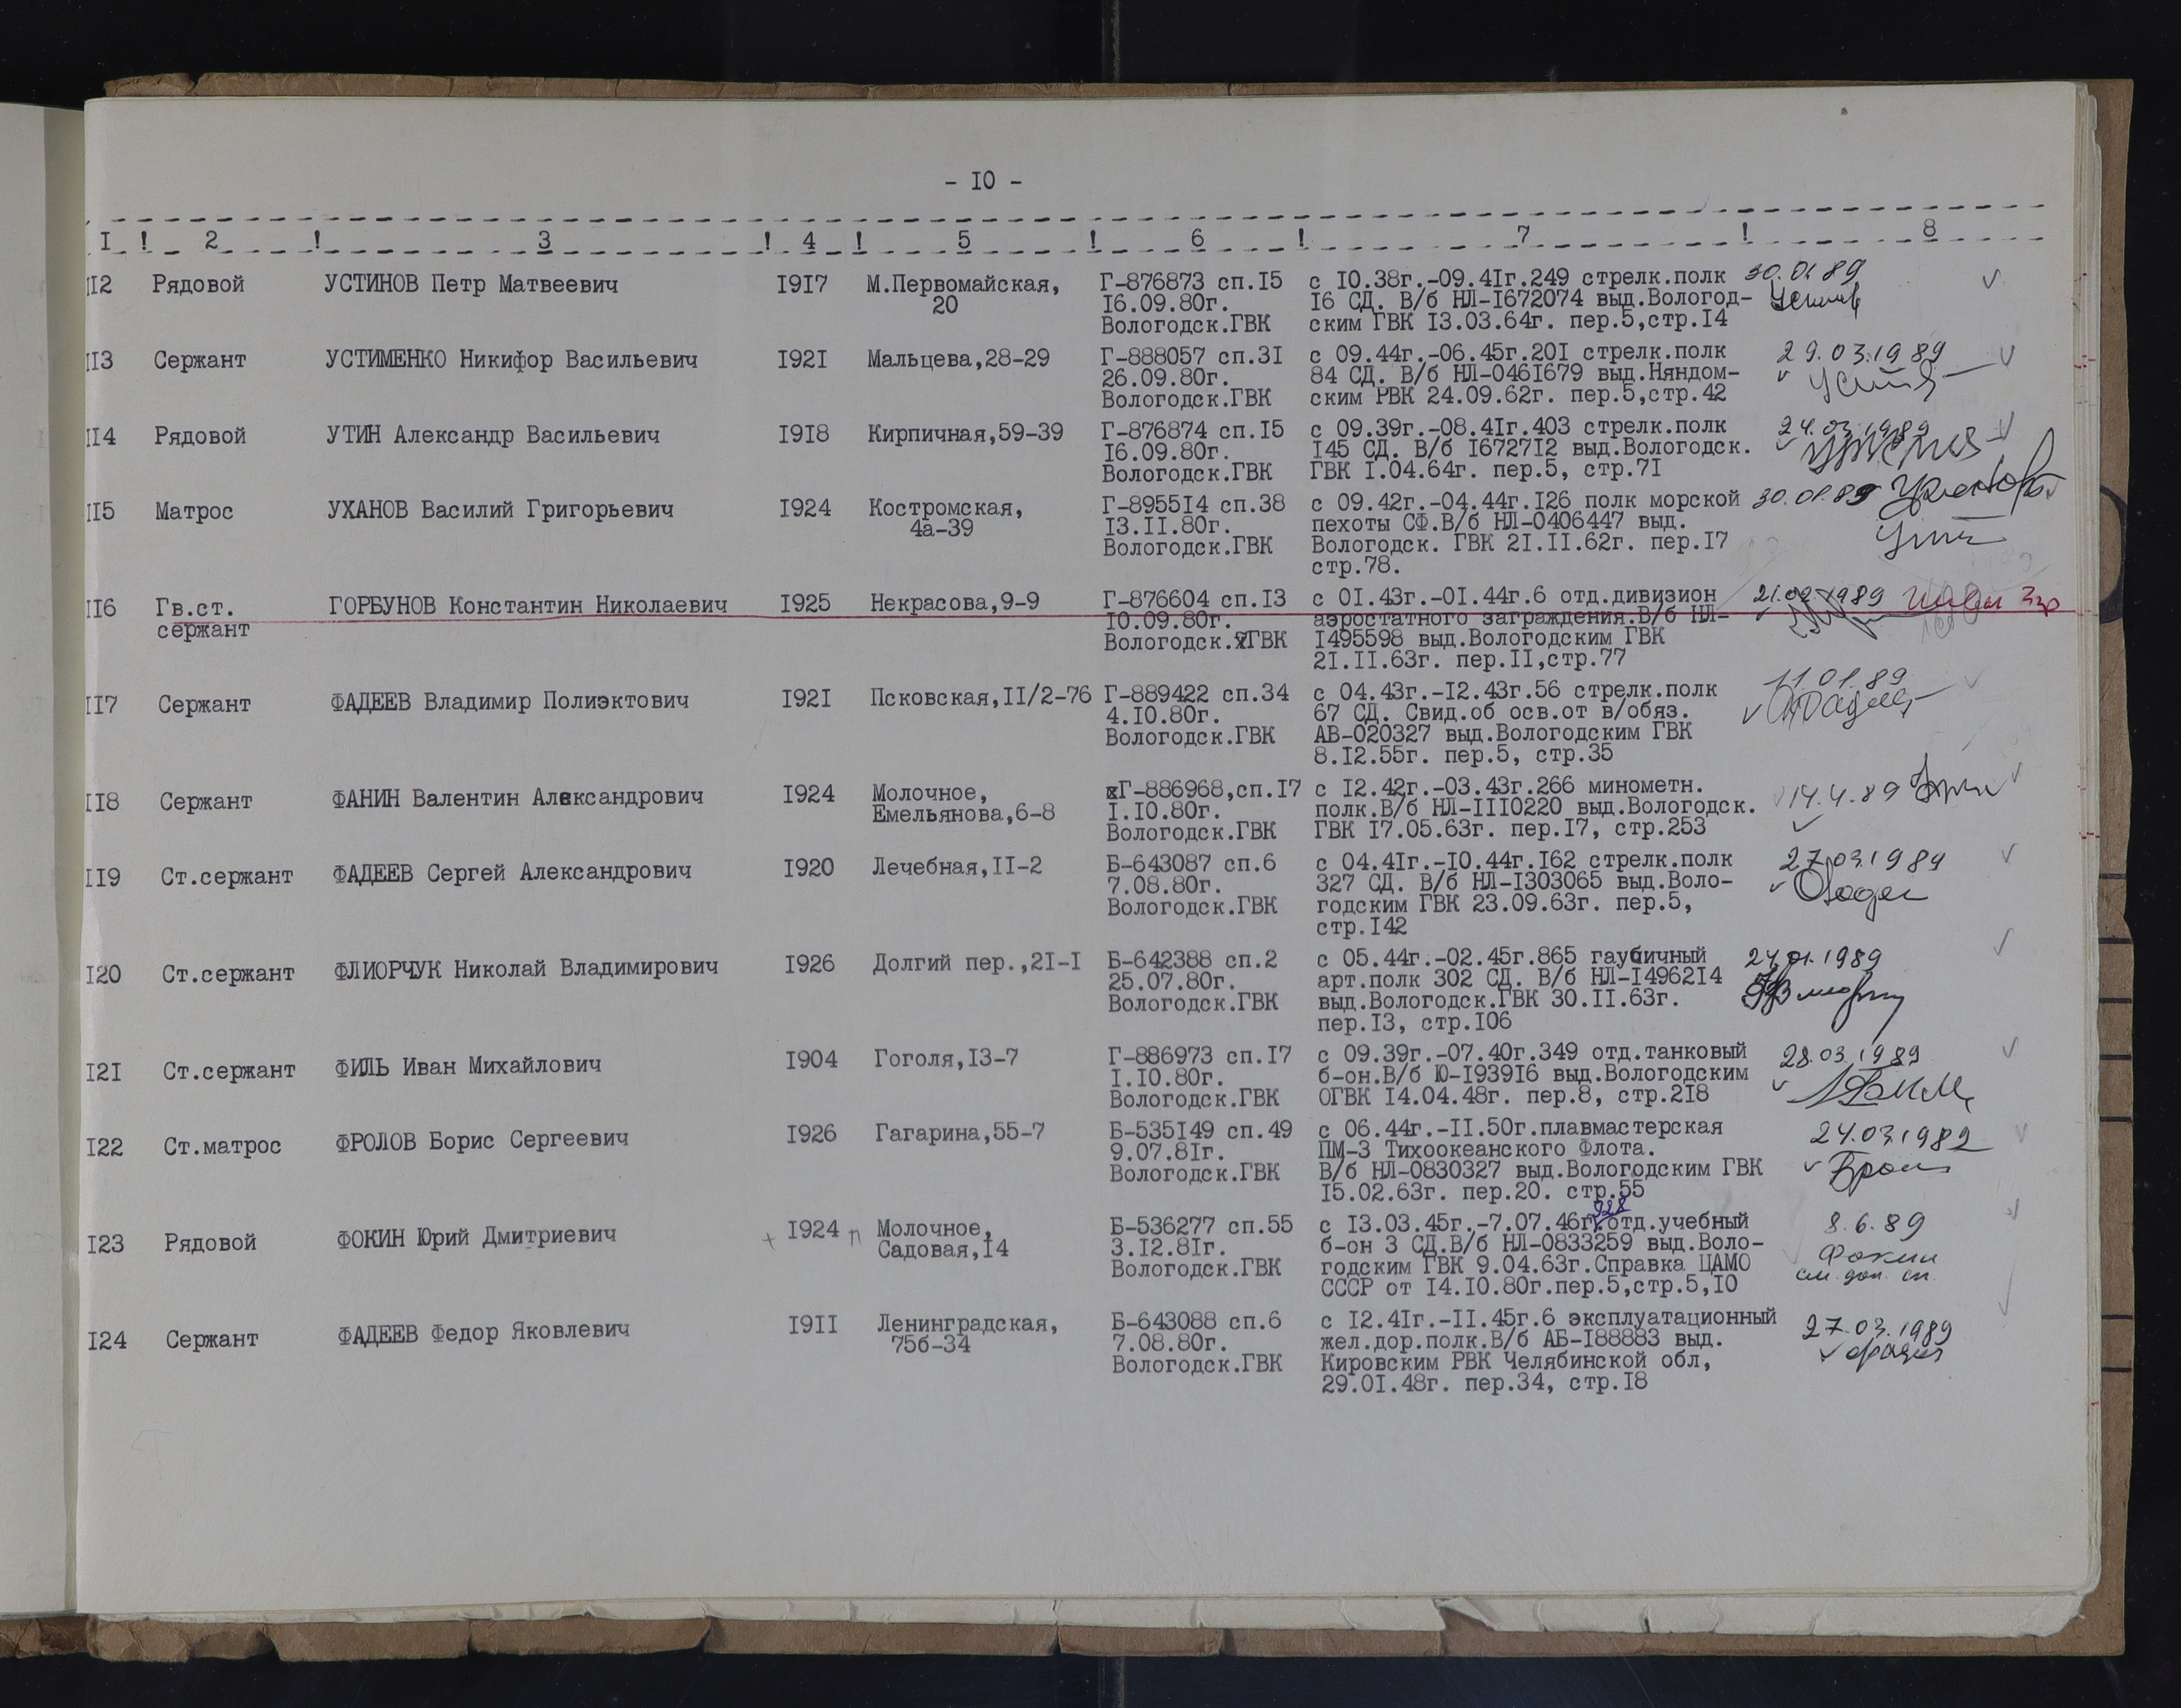 - I0 -
I ! 2 ! 3 ! 4 ! 5 ! 6 ! 7 ! 8
II2 Рядовой УСТИНОВ Петр Матвеевич I9I7 М.Первомайская, Г-876873 сп.I5 с I0.38г.-09.4Iг.249 стрелк.полк 30.01.89
20 I6.09.80г. I6 СД. В/б НЛ-I672074 выд.Вологод-
Вологодск.ГВК ским ГВК I3.03.64г. пер.5,стр.I4
II3 Сержант УСТИМЕНКО Никифор Васильевич I92I Мальцева,28-29 Г-888057 сп.3I с 09.44г.-06.45г.20I стрелк.полк 29.03.1989
26.09.80г. 84 СД. В/б НЛ-046I679 выд.Няндом-
Вологодск.ГВК ским РВК 24.09.62г. пер.5,стр.42
II4 Рядовой УТИН Александр Васильевич I9I8 Кирпичная,59-39 Г-876874 сп.I5 с 09.39г.-08.4Iг.403 стрелк.полк 24.03.1989
I6.09.80г. I45 СД. В/б I6727I2 выд.Вологодск.
Вологодск.ГВК ГВК I.04.64г. пер.5, стр.7I
II5 Матрос УХАНОВ Василий Григорьевич I924 Костромская, Г-8955I4 сп.38 с 09.42г.-04.44г.I26 полк морской 30.01.89
4а-39 I3.II.80г. пехоты СФ.В/б НЛ-0406447 выд.
Вологодск.ГВК Вологодск. ГВК 2I.II.62г. пер.I7
стр.78.
II6 Гв.ст. ГОРБУНОВ Константин Николаевич I925 Некрасова,9-9 Г-876604 сп.I3 с 0I.43г.-0I.44г.6 отд.дивизион 21.02.1989
сержант I0.09.80г. аэростатного заграждения.В/б НЛ-
Вологодск.ГВК I495598 выд.Вологодским ГВК
2I.II.63г. пер.II,стр.77
II7 Сержант ФАДЕЕВ Владимир Полиэктович I92I Псковская,II/2-76 Г-889422 сп.34 с 04.43г.-I2.43г.56 стрелк.полк 11.01.89
4.I0.80г. 67 СД. Свид.об осв.от в/обяз.
Вологодск.ГВК АВ-020327 выд.Вологодским ГВК
8.I2.55г. пер.5, стр.35
II8 Сержант ФАНИН Валентин Александрович I924 Молочное, Г-886968,сп.I7 с I2.42г.-03.43г.266 минометн. 14.4.89
Емельянова,6-8 I.I0.80г. полк.В/б НЛ-III0220 выд.Вологодск.
Вологодск.ГВК ГВК I7.05.63г. пер.I7, стр.253
II9 Ст.сержант ФАДЕЕВ Сергей Александрович I920 Лечебная,II-2 Б-643087 сп.6 с 04.4Iг.-I0.44г.I62 стрелк.полк 27.03.1989
7.08.80г. 327 СД. В/б НЛ-I303065 выд.Воло-
Вологодск.ГВК годским ГВК 23.09.63г. пер.5,
стр.I42
I20 Ст.сержант ФЛИОРЧУК Николай Владимирович I926 Долгий пер.,2I-I Б-642388 сп.2 с 05.44г.-02.45г.865 гаубичный 24.01.1989
25.07.80г. арт.полк 302 СД. В/б НЛ-I4962I4
Вологодск.ГВК выд.Вологодск.ГВК 30.II.63г.
пер.I3, стр.I06
I2I Ст.сержант ФИЛЬ Иван Михайлович I904 Гоголя,I3-7 Г-886973 сп.I7 с 09.39г.-07.40г.349 отд.танковый 28.03.1989
I.I0.80г. б-он.В/б Ю-I939I6 выд.Вологодским
Вологодск.ГВК ОГВК I4.04.48г. пер.8, стр.2I8
I22 Ст.матрос ФРОЛОВ Борис Сергеевич I926 Гагарина,55-7 Б-535I49 сп.49 с 06.44г.-II.50г.плавмастерская 24.03.1989
9.07.8Iг. ПМ-3 Тихоокеанского Флота.
Вологодск.ГВК В/б НЛ-0830327 выд.Вологодским ГВК
I5.02.63г. пер.20. стр.55
928
I23 Рядовой ФОКИН Юрий Дмитриевич + I924 п Молочное, Б-536277 сп.55 с I3.03.45г.-7.07.46г. отд.учебный 8.6.89
Садовая,I4 3.I2.8Iг. б-он 3 СД.В/б НЛ-0833259 выд.Воло- Фокин
Вологодск.ГВК годским ГВК 9.04.63г.Справка ЦАМО см. доп. сп.
СССР от I4.I0.80г.пер.5,стр.5,I0
I24 Сержант ФАДЕЕВ Федор Яковлевич I9II Ленинградская, Б-643088 сп.6 с I2.4Iг.-II.45г.6 эксплуатационный 27.03.1989
75б-34 7.08.80г. жел.дор.полк.В/б АБ-I88883 выд.
Вологодск.ГВК Кировским РВК Челябинской обл,
29.0I.48г. пер.34, стр.I8